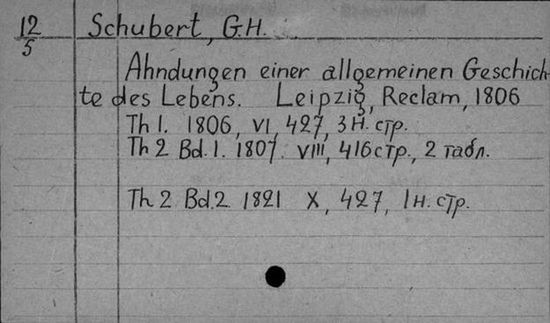 12/5 Schubert, G.H.
Ahndungen einer allgemeinen Geschich-
te des Lebens. Leipzig, Reclam, 1806
Th 1. 1806, VI, 427, 3 н. стр.
Th 2 Bd. 1. 1807. VIII, 416 стр., 2 табл.
Th 2 Bd. 2 1821 X, 427, 1 н. стр.